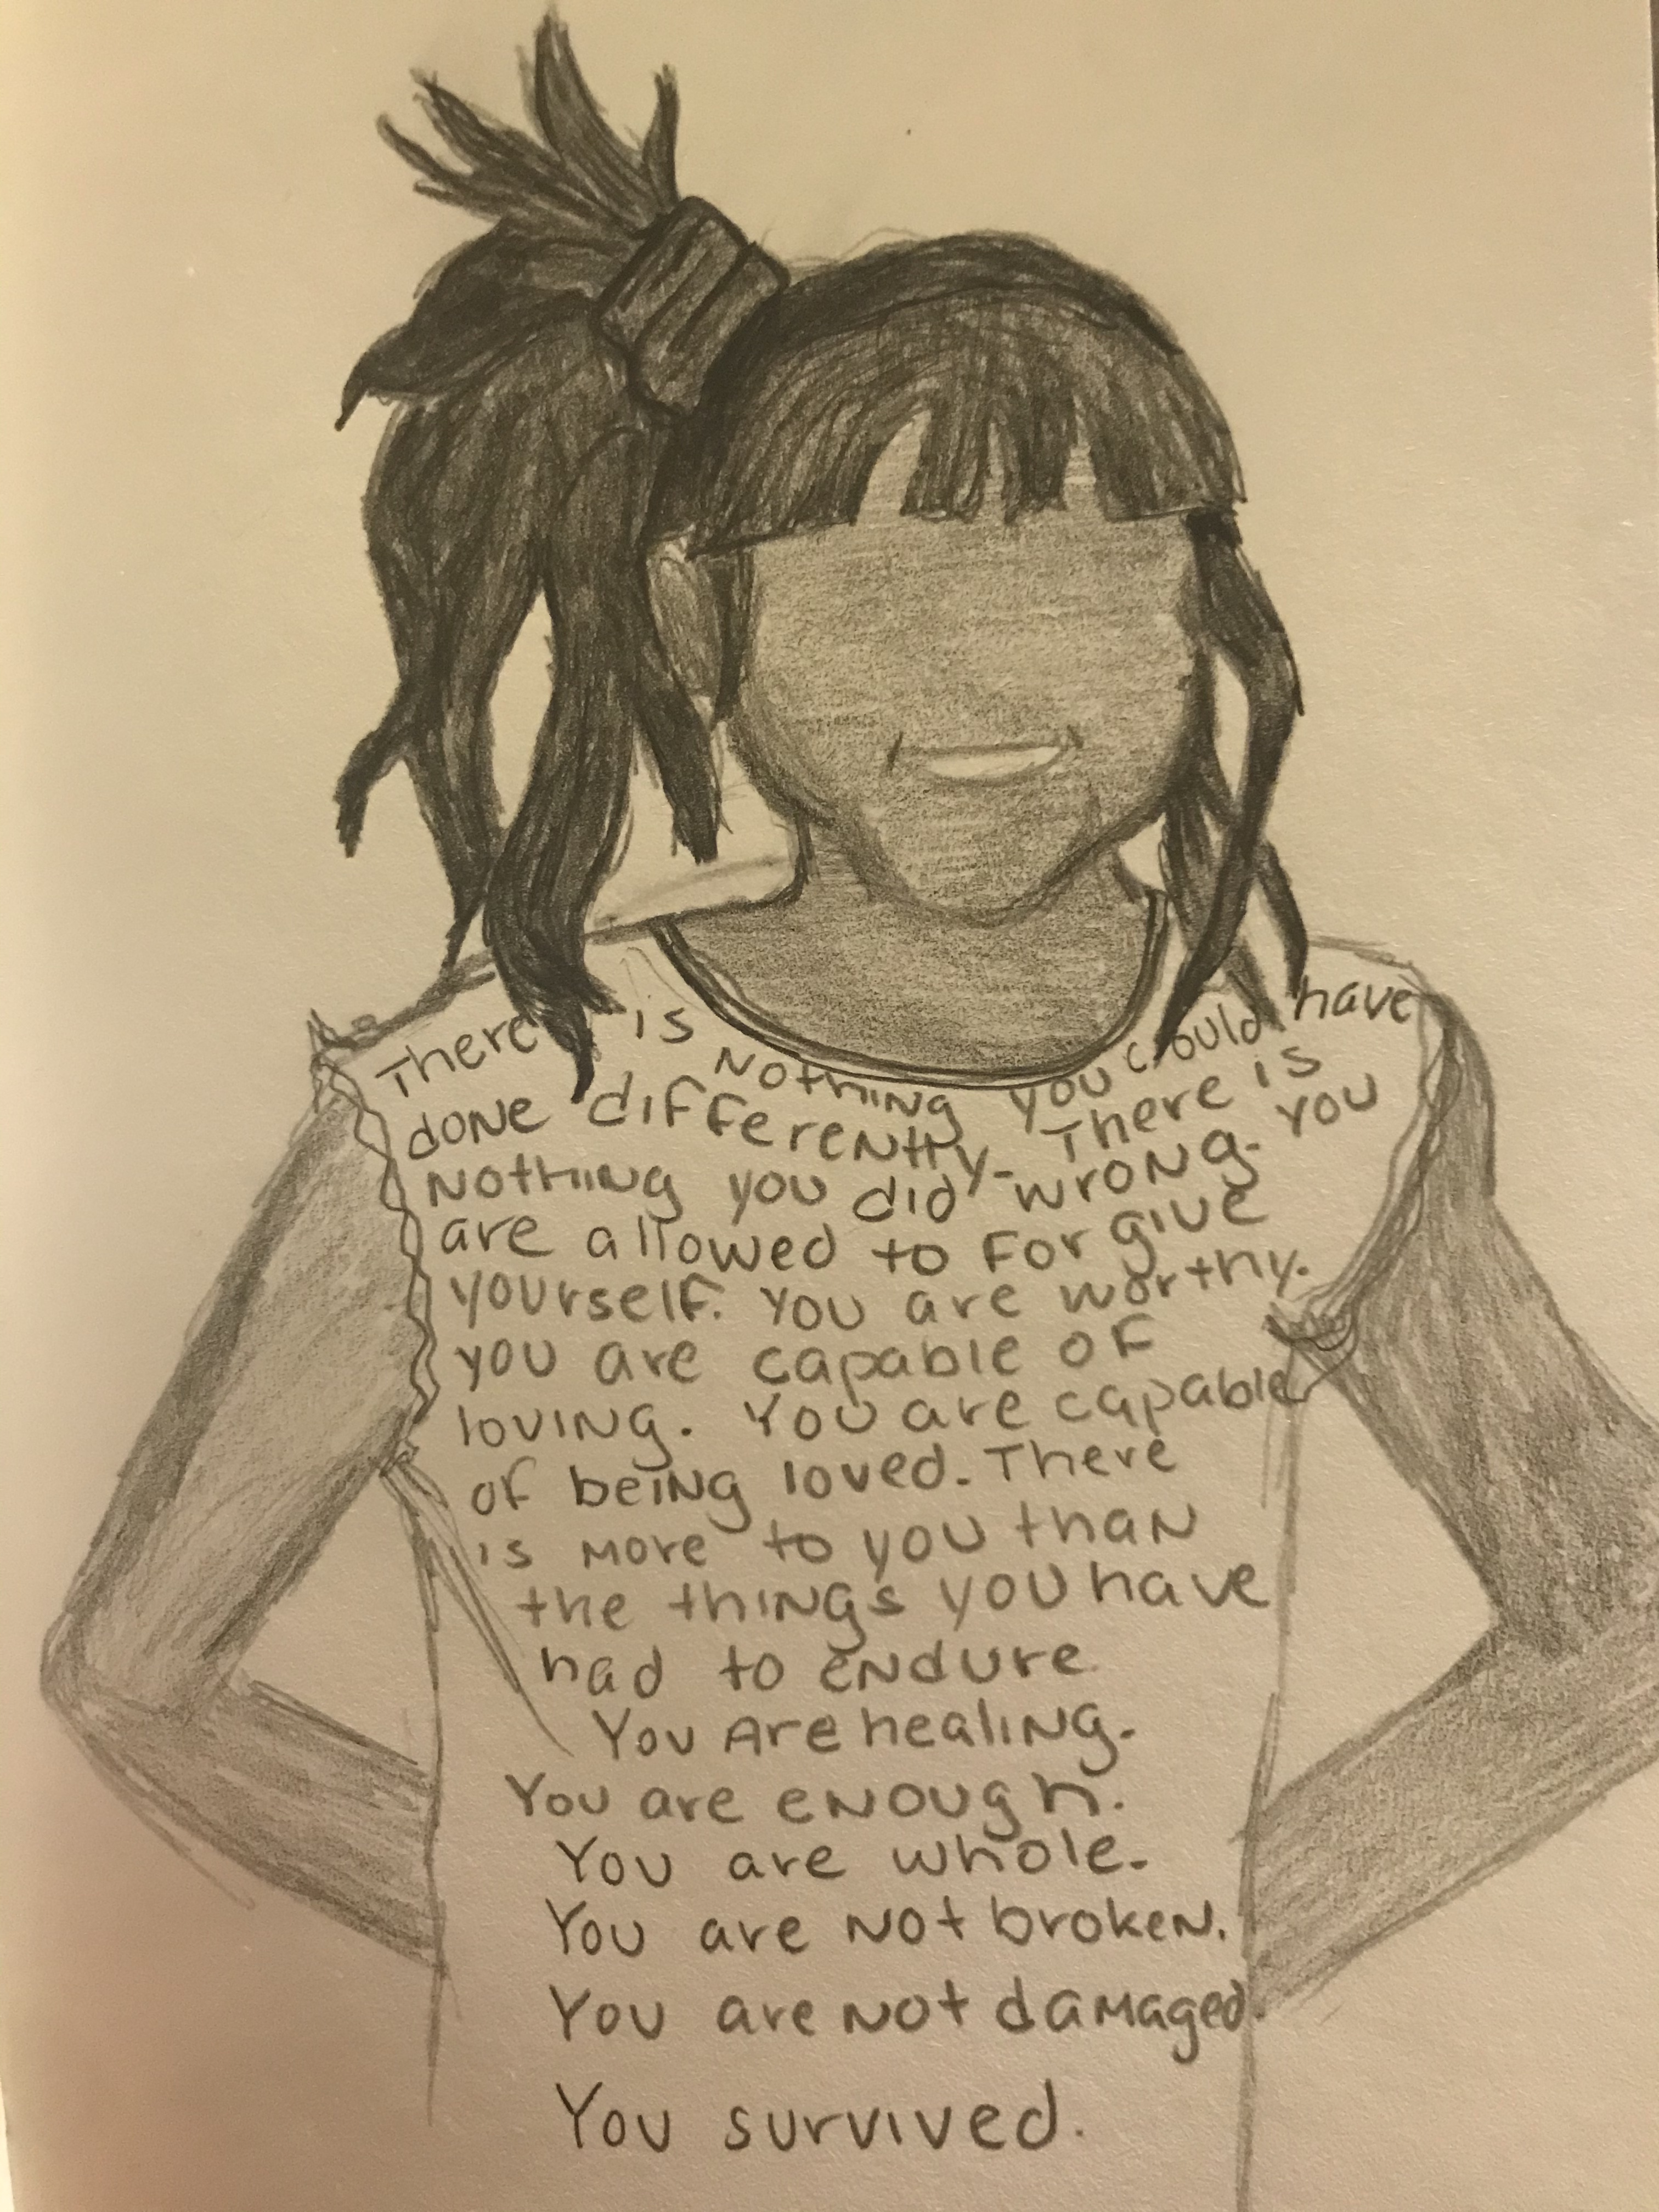 There is Nothing you could have
done differently. There is
Nothing you did wrong. You
are allowed to forgive
yourself. You are worthy.
you are capable of
loving. You are capable
of being loved. There
is more to you than
the things you have
had to endure.
You Are healing.
You are enough.
You are whole.
You are not broken.
You are not damaged.
You survived.